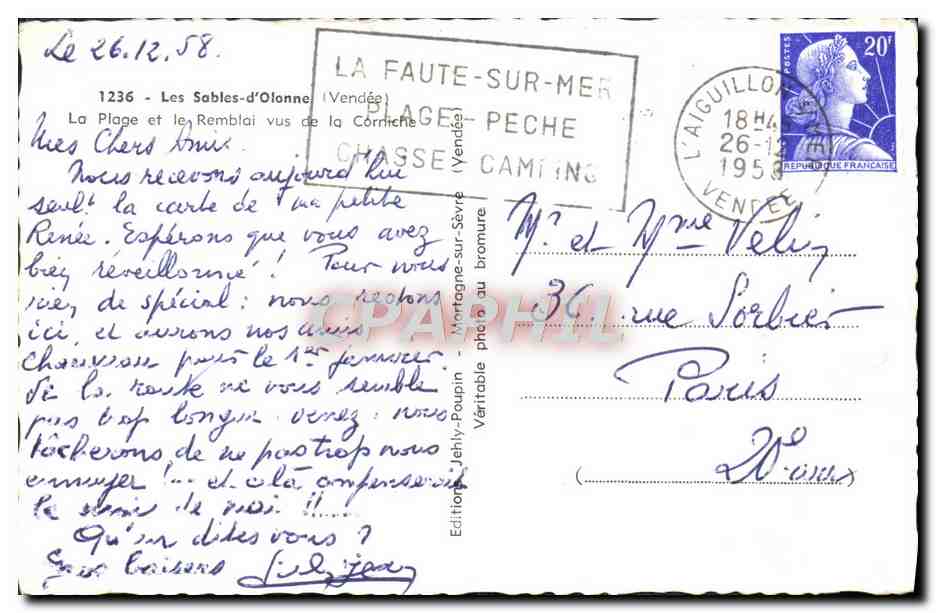 Le 26.12.58.
1236 - Les Sables-d'Olonne (Vendée)
La Plage et le Remblai vus de la Corniche
Mes Chers Amis.
Nous recevons aujourd'hui
seul.t la carte de ma petite
Renée. Espérons que vous avez
bien réveillonné! Pour nous
rien de spécial: nous restons
ici, et aurons nos amis
Chauveau pour le 1er janvier.
Si la route ne vous semble
pas trop longue venez: nous
tâcherons de ne pas trop nous
ennuyer!... et cela compenserait
le de noël !!....
Qu'en dites vous?
Gros baisers
Editions Jehly-Poupin - Mortagne-sur-Sèvre (Vendée)
Véritable photo au bromure
LA FAUTE-SUR-MER
PLAGE - PECHE
CHASSE - CAMPING
L'AIGUILLON S MER
18H4
26-12
1958
VENDEE
POSTES
20F
REPUBLIQUE FRANCAISE
Mr. et Mme Velin
36, rue Sorbier
Paris
20e
CPAPHIL